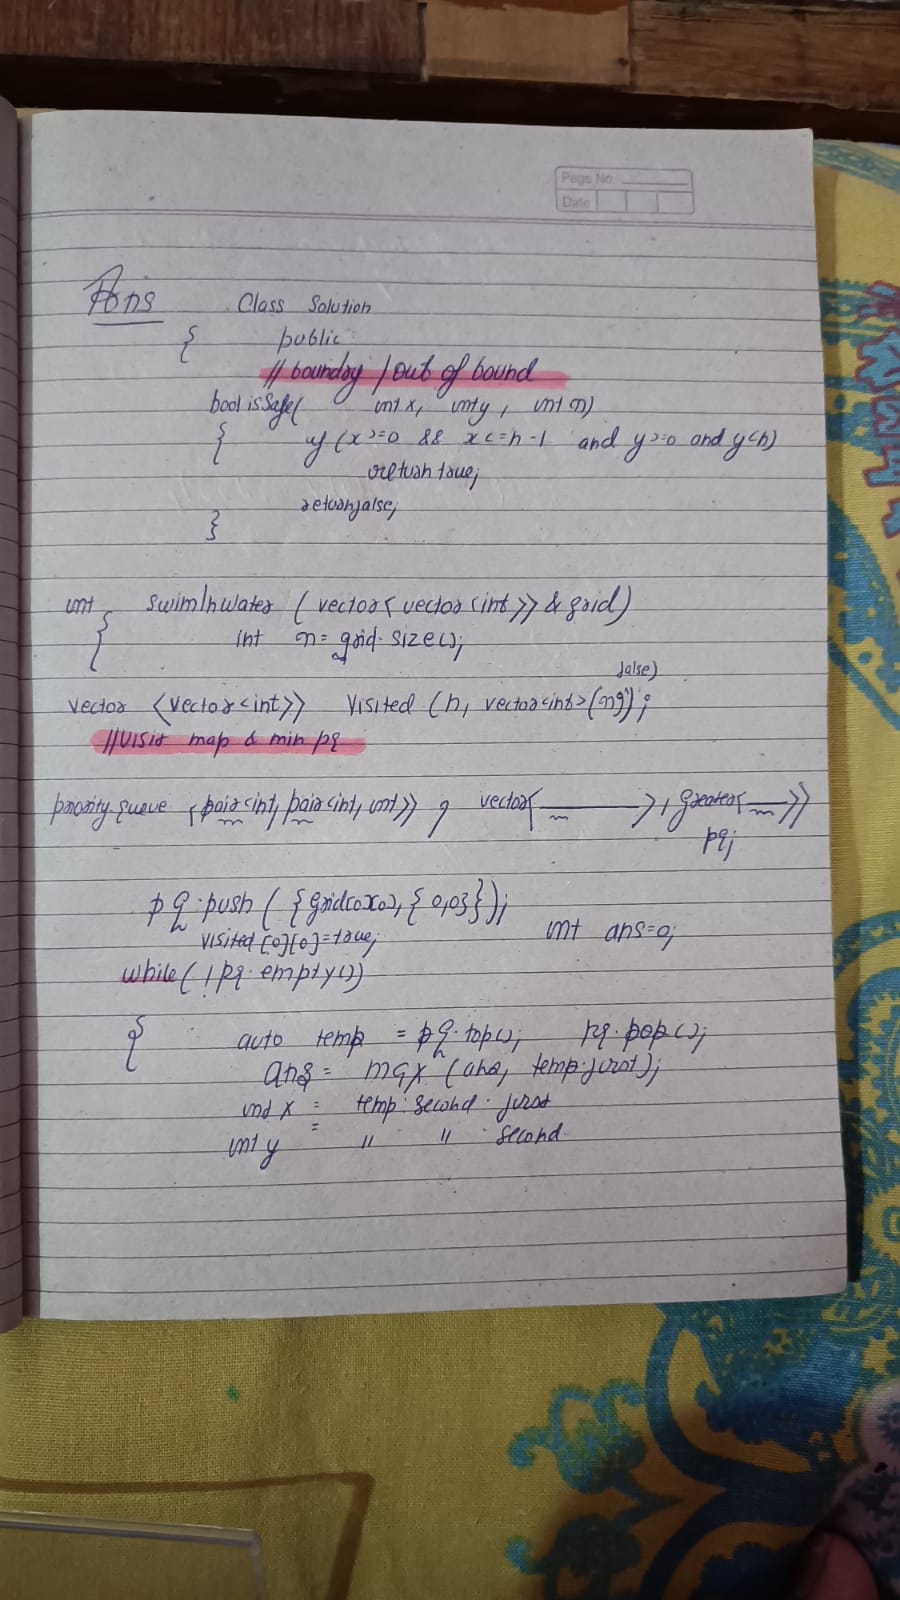 Page No.
Date
Ans Class Solution
{ public:
// boundry / out of bound
bool isSafe( int x, int y, int n)
{ if (x>=0 && x<=n-1 and y>=0 and y<n)
return true;
return false;
}
int swimInWater (vector<vector<int>> & grid)
{ int n= grid.size();
false)
vector <vector<int>> visited (n, vector<int>(n, ;
//visit map & min pq
priority-queue <pair<int, pair<int, int>> , vector< >, greater< >>
pq;
pq.push ( {grid[0][0], {0,0}});
visited [0][0]=true; int ans=0;
while( !pq.empty())
{ auto temp = pq.top(); pq.pop();
ans = max (ans, temp.first);
int x = temp.second.first
int y = " " .second.